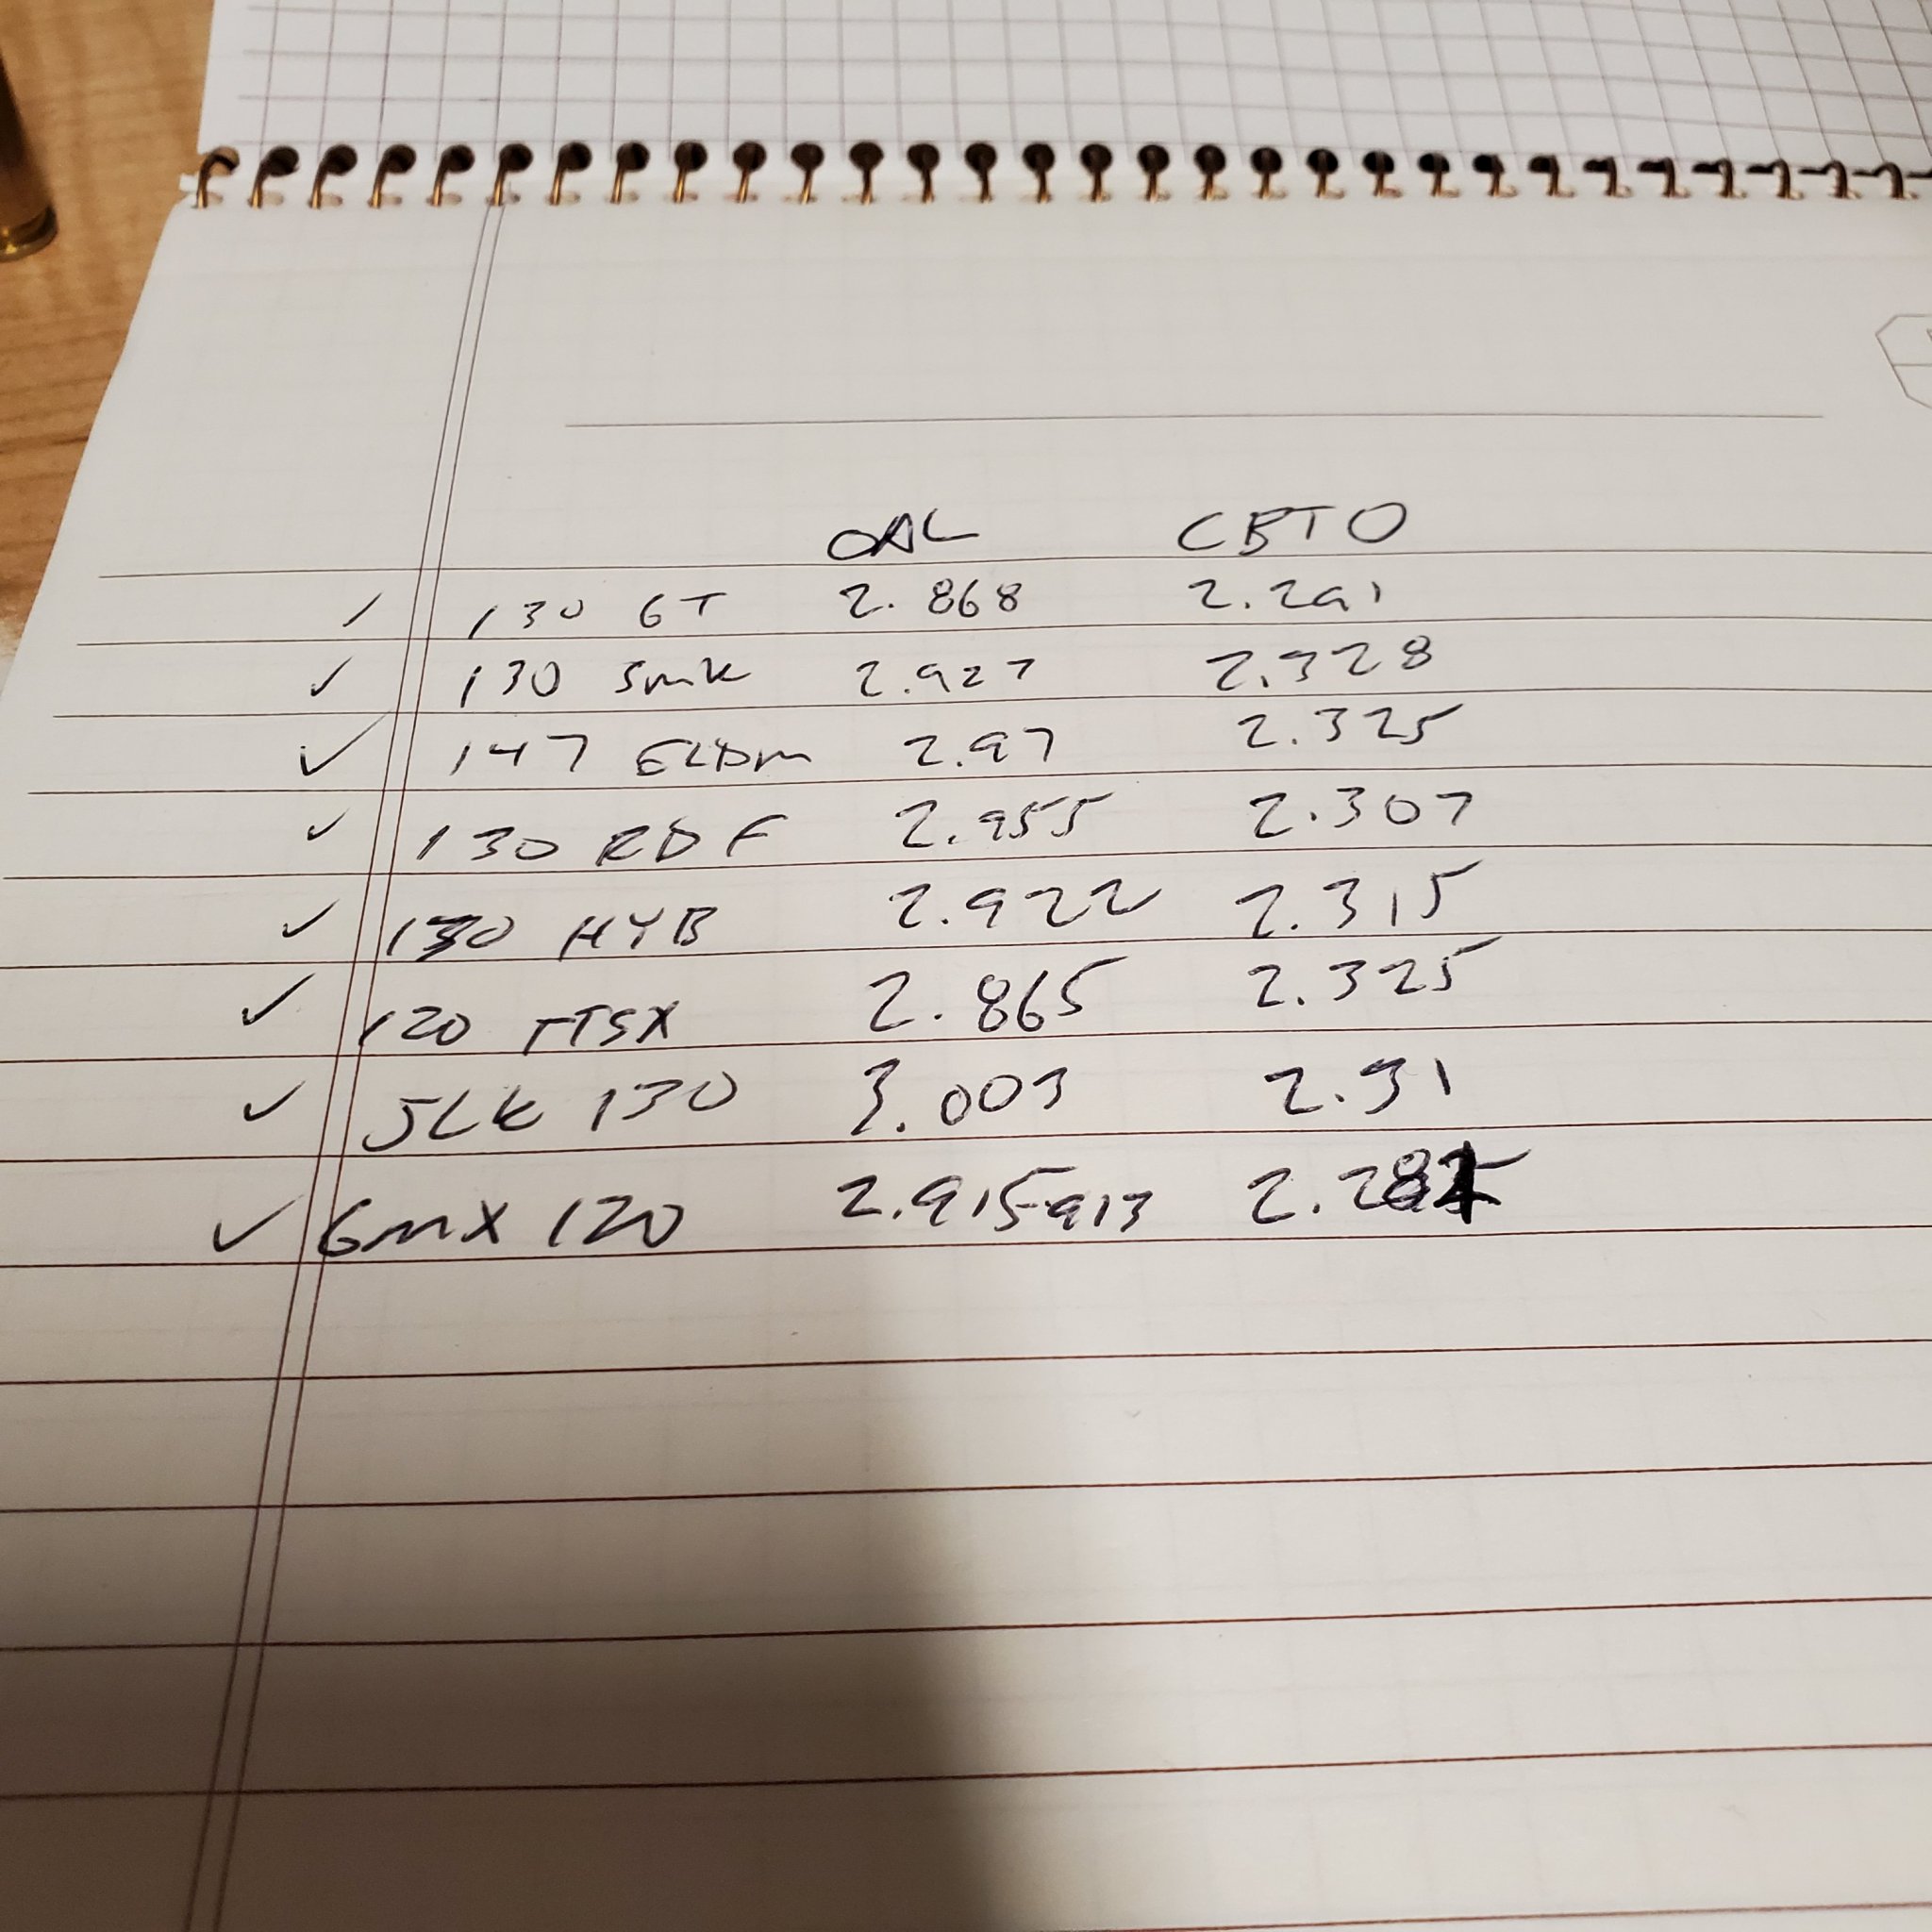 OAL CBTO
130 GT 2.868 2.291
130 SMK 2.927 2.328
147 ELDM 2.97 2.325
130 RDF 2.955 2.307
130 HYB 2.922 2.315
120 TTSX 2.865 2.325
JLK 130 3.003 2.31
GMX 120 2.915 913